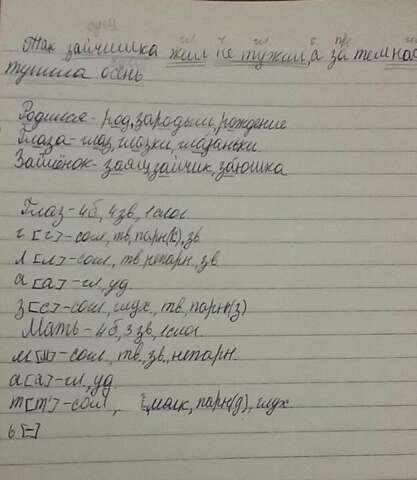 сущ
гл ч гл с. пр гл
Так зайчишка жил не тужил, а за тем нас
тупила осень
Родился - род, зародыш, рождение
Глаза - глаз, глазки, глазаньки
Зайчонок - заяц, зайчик, заюшка
Глаз - 4б, 4зв, 1слог.
г [г] - согл, тв, парн(к), зв
л [л] - согл, тв, непарн, зв.
а [а] - гл, уд.
з [с] - согл, глух, тв, парн(з)
Мать - 4б, 3зв, 1слог.
м [м] - согл, тв, зв, непарн.
а [а] - гл, уд.
т [т'] - согл, мягк, парн(д), глух
ь [-]